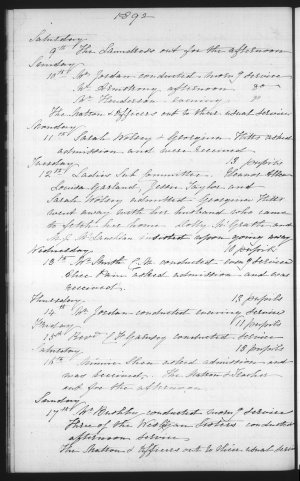 1892
Saturday
9th The Laundress out for the afternoon
Sunday
10th Mr Jordan conducted morng service
Mr Armstrong afternoon do
Mr Henderson evening "
The Matron & Officers out to their usual services
Monday
11th Sarah & Georgina asked
admission and were received
Tuesday 13 present
12th Ladies Sub Committee. Eleanor
Louisa Garland, Jessie Taylor and
Sarah admitted. Georgina
went away with her husband who came
to fetch her home. Dolly McGrath and
insisted upon going away
Wednesday 10 present
13th Mr Smith conducted eveng service
asked admission and was
received.
Thursday 13 present
14th Mr Jordan conducted evening service
Friday 11 present
15th Revd conducted service
Saturday 13 present
16th Minnie asked admission and
was received. The Matron & Teacher
out for the afternoon
Sunday
17th Mr conducted morng service
Three of the Wesleyan Sisters conducted
afternoon service
The Matron & Officers out to their usual service